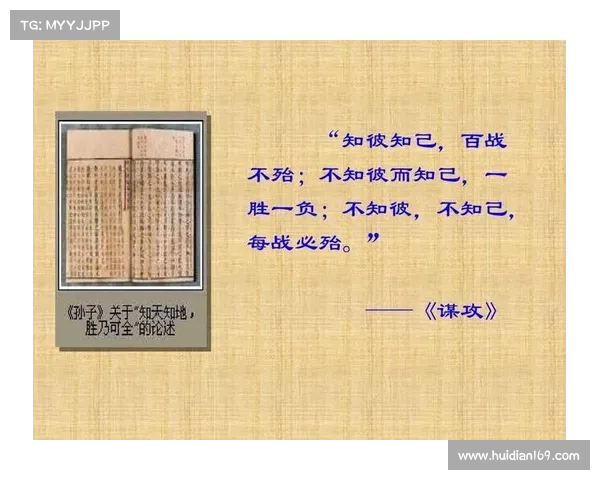 TG: MYYJJPP
“知彼知己，百战
不殆；不知彼而知己，一
胜一负；不知彼，不知己，
每战必殆。”
——《谋攻》
《孙子》关于“知天知地，
胜乃可全”的论述
www.huidian169.com